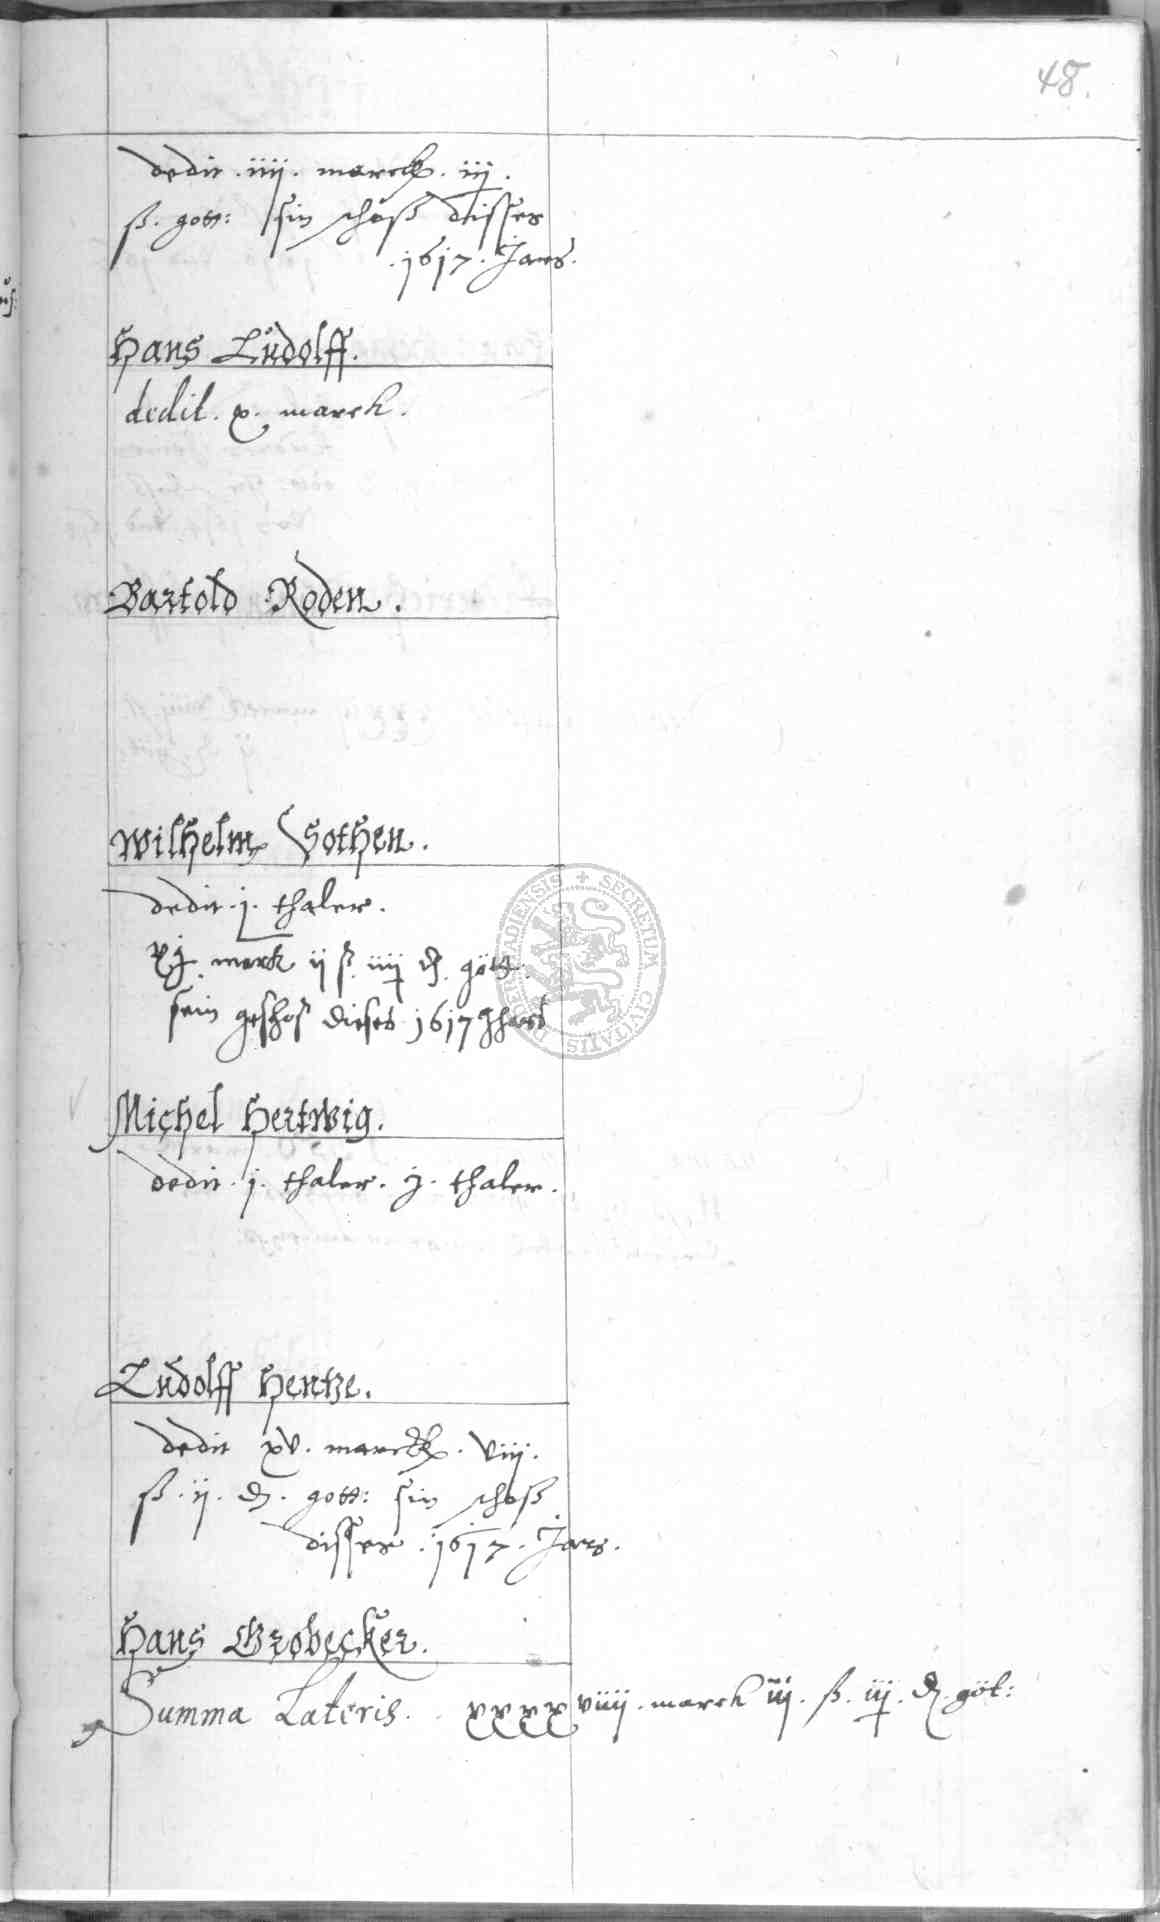 48.
dedit . iiij . marck . iij .
ß . gott: sin schoß disser
. 1617 . Jars .
Hans Lŭdolff.
dedit . x . marck .
Bartold Roden .
Wilhelm Gothen .
dedit . j . thaler .
xj . mark ij ß iiij ₰ . gött .
sein geschos dieses 1617 Jhars
Michel Hertwig .
dedit . j . thaler . j . thaler .
Lŭdolff Hentze .
dedit xv . marck . viij .
ß . ij . ₰ . gott: sin schoß
disser . 1617 . Jars .
Hans Grobecker .
Summa Lateris . . xxxxviiij . marck iij . ß . iij . ₰ . göt:
SECRETUM CIVITATIS DUDERSTADIENSIS